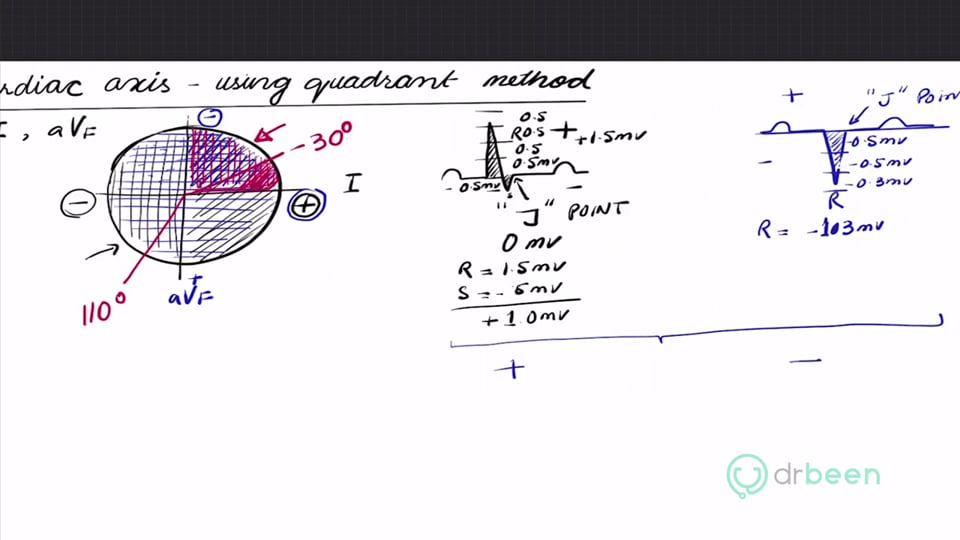 rdiac axis - using quadrant method
I, aVF
-
-30°
I
-
+
+
aVF
110°
0.5
R 0.5 + +1.5mV
0.5
0.5mV
-0.5mV
-
"J" POINT
0 mV
R = 1.5mV
S = -.5mV
+1.0mV
+
"J" Point
-
-0.5mV
-0.5mV
-0.3mV
R
R = -1.3mV
+
-
drbeen